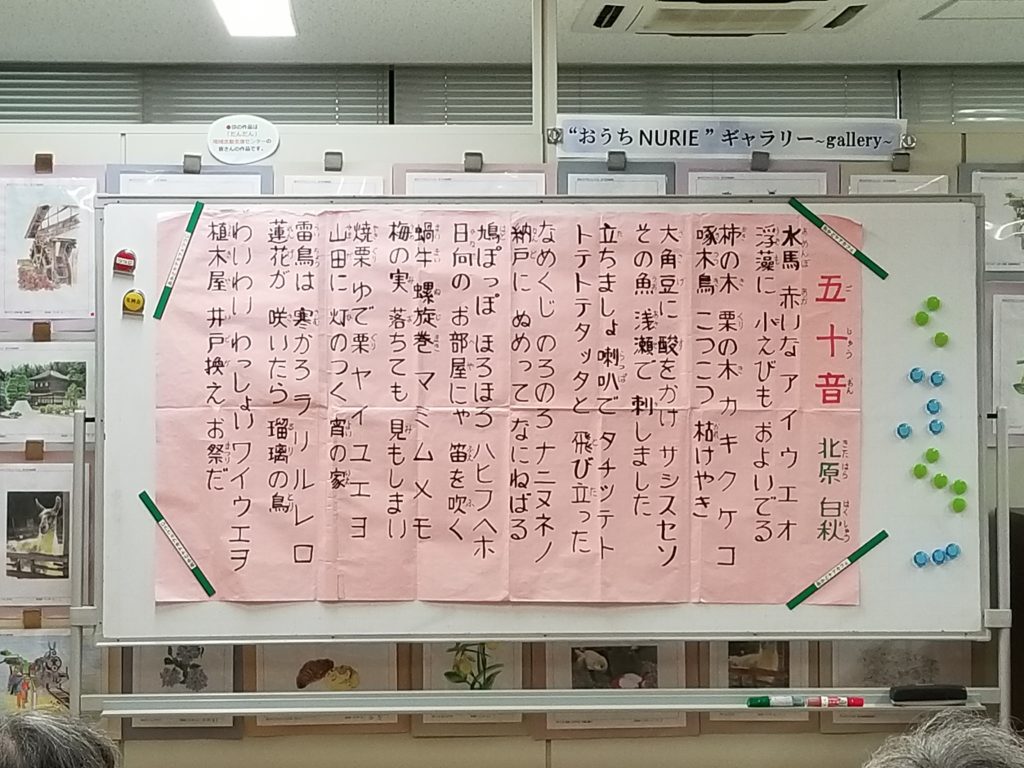 ●印の作品は
「だんだん」
地域活動支援センターの
皆さんの作品です。
“おうち NURIE ” ギャラリー~gallery~
五十音
北原 白秋
水馬 赤いなアイウエオ
浮藻に 小えびも およいでる
柿の木 栗の木 カキクケコ
啄木鳥 こつこつ 枯けやき
大角豆に 酸をかけ サシスセソ
その魚 浅瀬で 刺しました
立ちましょ 喇叭で タチツテト
トテトテタッタと 飛び立った
なめくじ のろのろ ナニヌネノ
納戸に ぬめって なにねばる
鳩ぽっぽ ほろほろ ハヒフヘホ
日向の お部屋にゃ 笛を吹く
蝸牛 螺旋巻 マミムメモ
梅の実 落ちても 見もしまい
焼栗 ゆで栗 ヤイユエヨ
山田に 灯のつく 宵の家
雷鳥は 寒かろ ラリルレロ
蓮花が 咲いたら 瑠璃の鳥
わいわい わっしょい ワイウエヲ
植木屋 井戸換え お祭だ